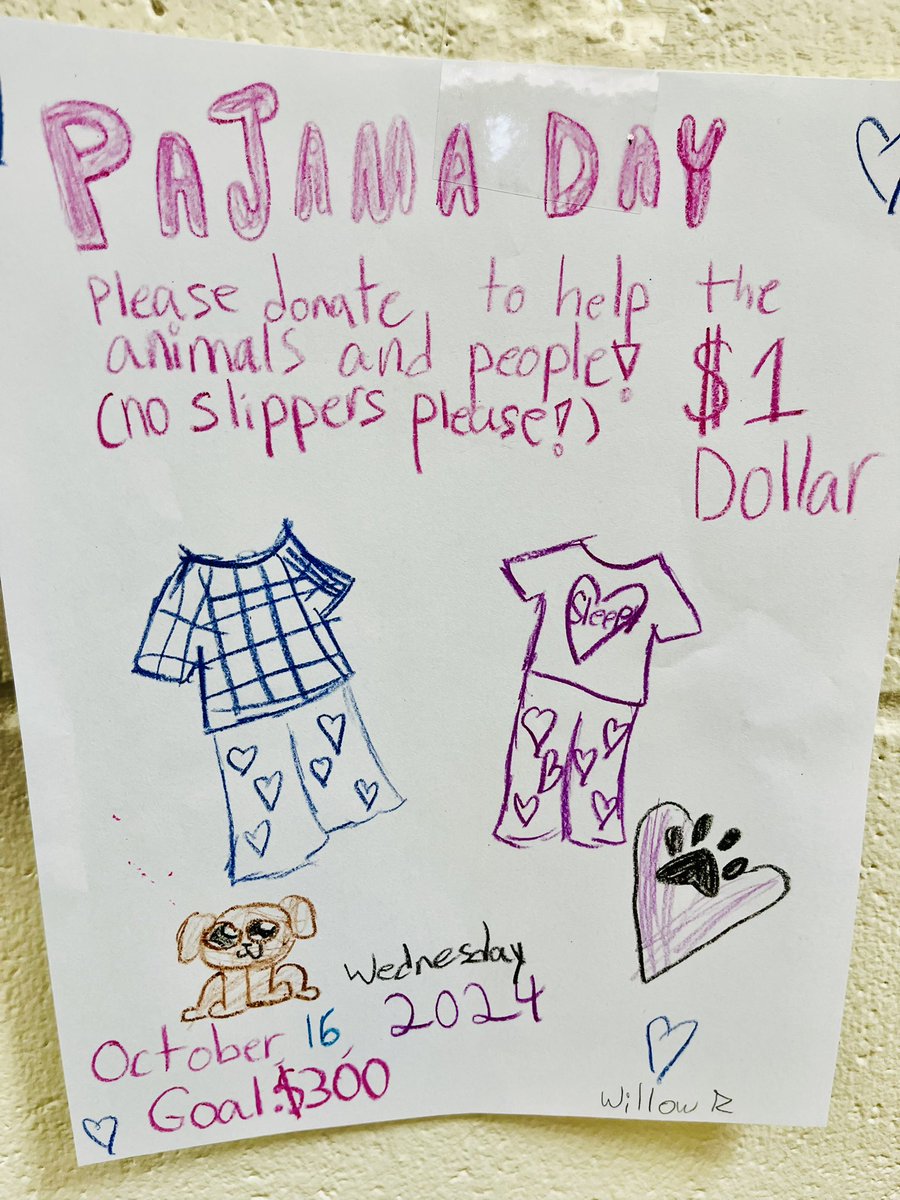 PAJAMA DAY
Please donate, to help the
animals and people!
(no slippers please!)
$1
Dollar
Sleep!
Wednesday
October, 16, 2024
Goal:$300
Willow R